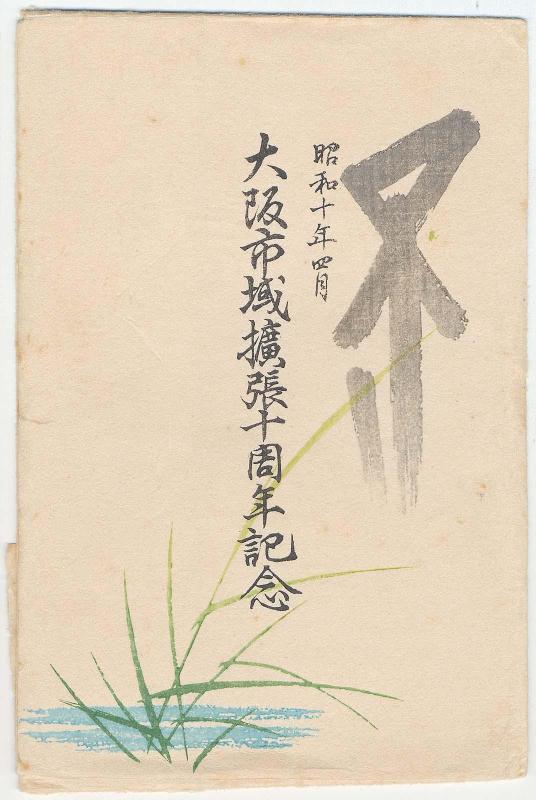 昭和十年四月
大阪市域擴張十周年記念